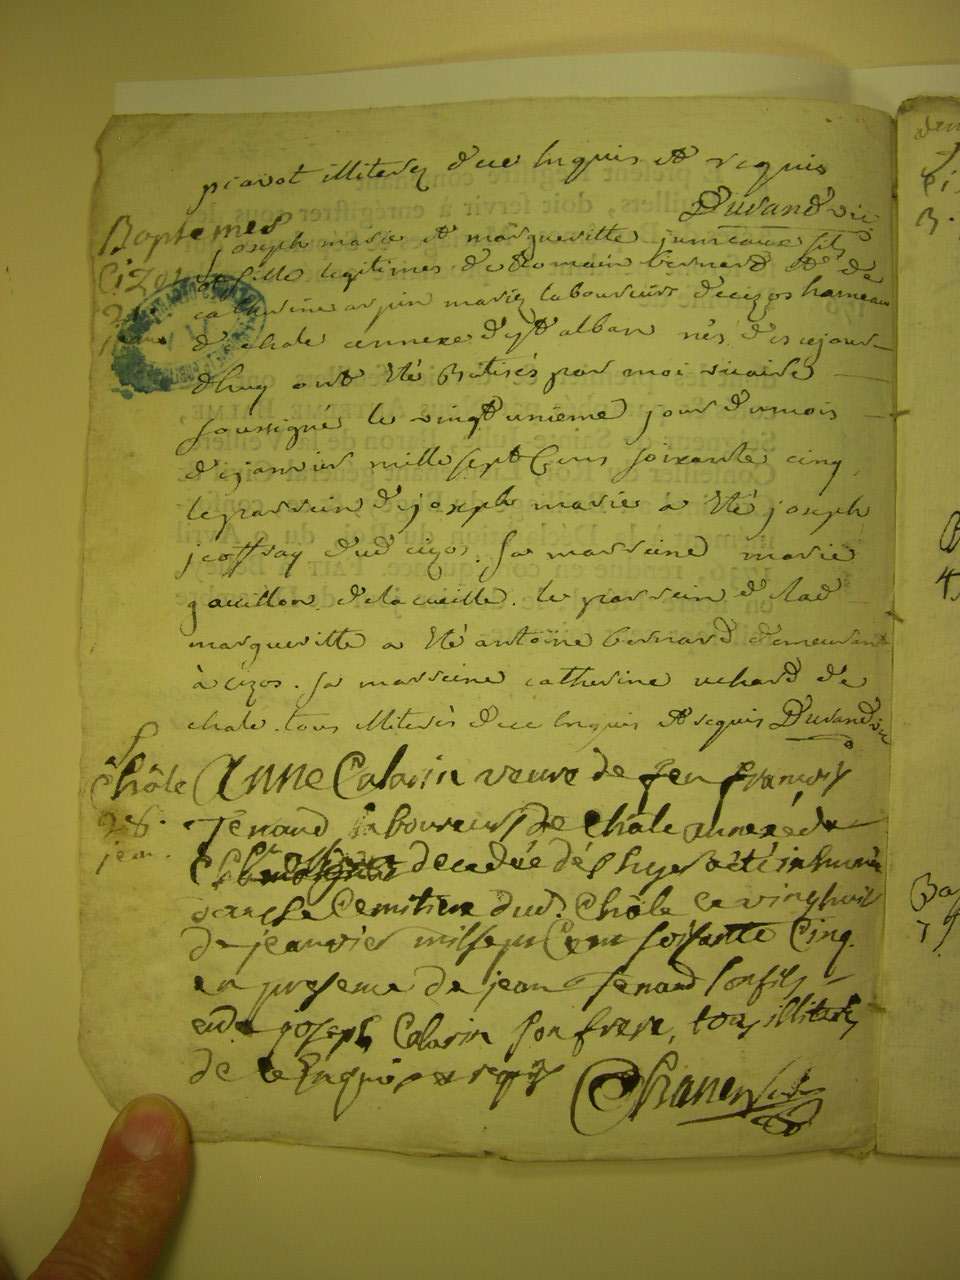 piavot illiterez de ce Enquis et requis
Durand vic
Baptemes
Cizos
joseph marie et margueritte jumeaux fils
et fille legitimes de Romain bernard et de
catherine arpin mariez laboureurs de cizos hameau
de chale annexe de st alban nés de cejour
dhuy ont eté Batisés par moi vicaire
soussigné le vingt unième jour du mois
de janvier mille sept Cens soixante cinq
le parrein de joseph marie a eté joseph
jeoffray dud cizos. sa marreine marie
gouillon de la cueille. le parrein de lad
margueritte a eté antoine bernard demeurant
à cizos. sa marreine catherine uchard de
chale. tous illiterés de ce Enquis et requis Durand vic
S
Châle
28.
jean.
Anne Calarin veuve de feu francois
Tenand laboureurs de Châle annexe de
decedée dés hyer a été inhumée
dans le Cemitiere dud. Châle ce vinghuit
de jeanvier mil sept Cent soissante Cinq.
en presence de jean Tenand son fils
et de joseph Calarin son frere, tous illiterés
de ce Enquis et requis